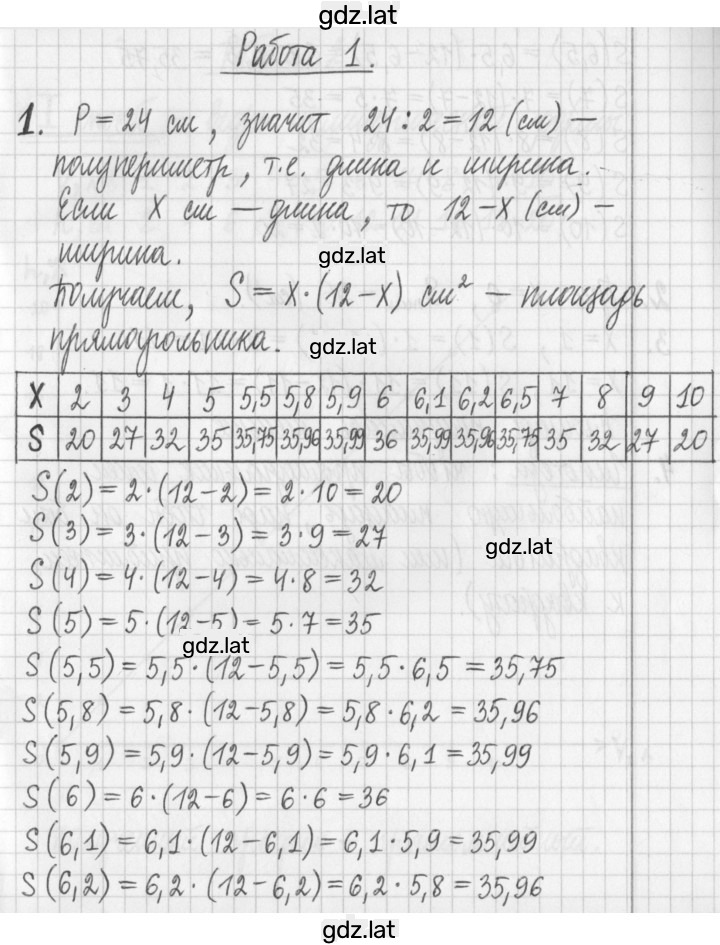 gdz.lat
Работа 1.
1. P = 24 см, значит 24 : 2 = 12 (см) –
полупериметр, т.е. длина и ширина.
Если X см – длина, то 12 – X (см) –
ширина.
gdz.lat
Получаем, S = X · (12 – X) см² – площадь
прямоугольника.
gdz.lat
X 2 3 4 5 5,5 5,8 5,9 6 6,1 6,2 6,5 7 8 9 10
S 20 27 32 35 35,75 35,96 35,99 36 35,99 35,96 35,75 35 32 27 20
S(2) = 2 · (12 – 2) = 2 · 10 = 20
S(3) = 3 · (12 – 3) = 3 · 9 = 27
gdz.lat
S(4) = 4 · (12 – 4) = 4 · 8 = 32
S(5) = 5 · (12 – 5) = 5 · 7 = 35
gdz.lat
S(5,5) = 5,5 · (12 – 5,5) = 5,5 · 6,5 = 35,75
S(5,8) = 5,8 · (12 – 5,8) = 5,8 · 6,2 = 35,96
S(5,9) = 5,9 · (12 – 5,9) = 5,9 · 6,1 = 35,99
S(6) = 6 · (12 – 6) = 6 · 6 = 36
S(6,1) = 6,1 · (12 – 6,1) = 6,1 · 5,9 = 35,99
S(6,2) = 6,2 · (12 – 6,2) = 6,2 · 5,8 = 35,96
gdz.lat